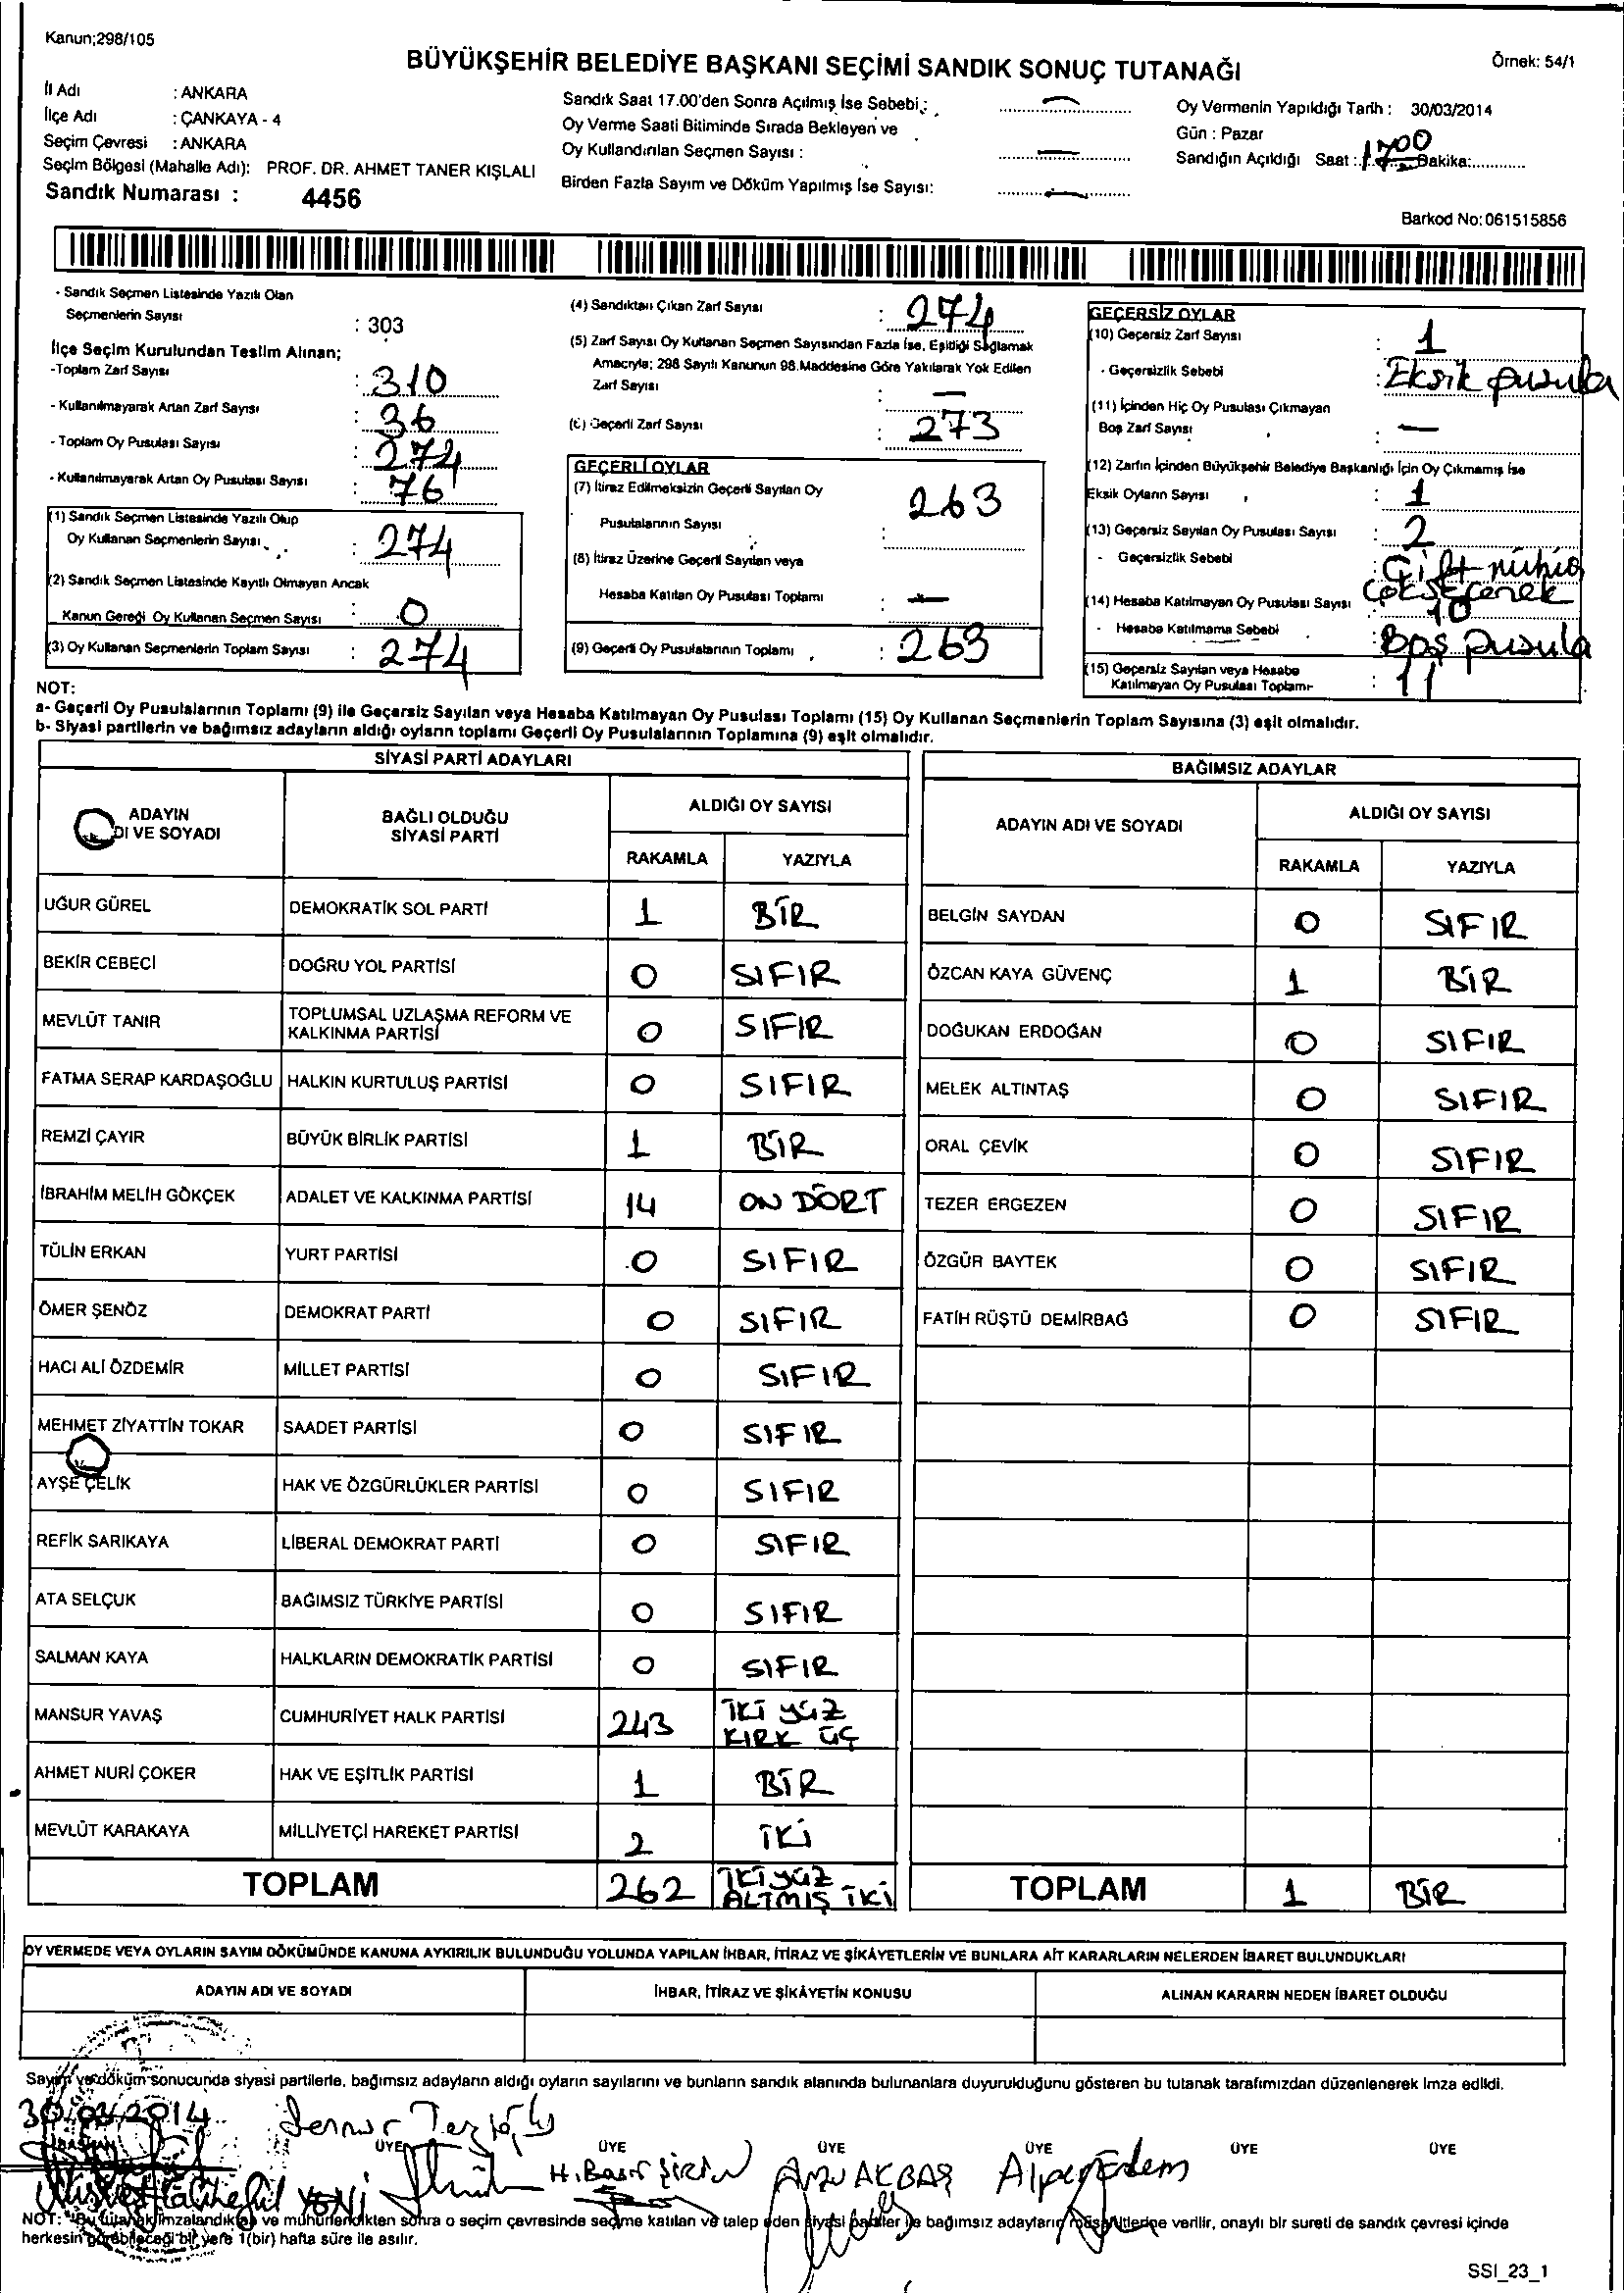 Kanun;298/105
BÜYÜKŞEHİR BELEDİYE BAŞKANI SEÇİMİ SANDIK SONUÇ TUTANAĞI
Örnek: 54/1
İl Adı : ANKARA
İlçe Adı : ÇANKAYA - 4
Seçim Çevresi : ANKARA
Seçim Bölgesi (Mahalle Adı): PROF. DR. AHMET TANER KIŞLALI
Sandık Numarası : 4456
Sandık Saat 17.00'den Sonra Açılmış İse Sebebi :
Oy Verme Saati Bitiminde Sırada Bekleyen ve
Oy Kullandırılan Seçmen Sayısı :
Birden Fazla Sayım ve Döküm Yapılmış İse Sayısı:
Oy Vermenin Yapıldığı Tarih : 30/03/2014
Gün : Pazar
Sandığın Açıldığı Saat : 1700 Dakika:
Barkod No: 061515856
- Sandık Seçmen Listesinde Yazılı Olan
Seçmenlerin Sayısı : 303
İlçe Seçim Kurulundan Teslim Alınan;
-Toplam Zarf Sayısı : 310
- Kullanılmayarak Artan Zarf Sayısı : 36
- Toplam Oy Pusulası Sayısı : 274
- Kullanılmayarak Artan Oy Pusulası Sayısı : 76
(1) Sandık Seçmen Listesinde Yazılı Olup
Oy Kullanan Seçmenlerin Sayısı : 274
(2) Sandık Seçmen Listesinde Kayıtlı Olmayan Ancak
Kanun Gereği Oy Kullanan Seçmen Sayısı : 0
(3) Oy Kullanan Seçmenlerin Toplam Sayısı : 274
(4) Sandıktan Çıkan Zarf Sayısı : 274
(5) Zarf Sayısı Oy Kullanan Seçmen Sayısından Fazla İse, Eşitliği Sağlamak
Amacıyla; 298 Sayılı Kanunun 98.Maddesine Göre Yakılarak Yok Edilen
Zarf Sayısı : —
(6) Geçerli Zarf Sayısı : 273
GEÇERLİ OYLAR
(7) İtiraz Edilmeksizin Geçerli Sayılan Oy
Pusulalarının Sayısı : 263
(8) İtiraz Üzerine Geçerli Sayılan veya
Hesaba Katılan Oy Pusulası Toplamı : —
(9) Geçerli Oy Pusulalarının Toplamı : 263
GEÇERSİZ OYLAR
(10) Geçersiz Zarf Sayısı : 1
- Geçersizlik Sebebi : Eksik pusula
(11) İçinden Hiç Oy Pusulası Çıkmayan
Boş Zarf Sayısı : —
(12) Zarfın İçinden Büyükşehir Belediye Başkanlığı İçin Oy Çıkmamış İse
Eksik Oyların Sayısı : 1
(13) Geçersiz Sayılan Oy Pusulası Sayısı : 2
- Geçersizlik Sebebi : Çift mühür
(14) Hesaba Katılmayan Oy Pusulası Sayısı : 10
- Hesaba Katılmama Sebebi : Boş pusula
(15) Geçersiz Sayılan veya Hesaba
Katılmayan Oy Pusulası Toplamı : 11
NOT:
a- Geçerli Oy Pusulalarının Toplamı (9) ile Geçersiz Sayılan veya Hesaba Katılmayan Oy Pusulası Toplamı (15) Oy Kullanan Seçmenlerin Toplam Sayısına (3) eşit olmalıdır.
b- Siyasi partilerin ve bağımsız adayların aldığı oyların toplamı Geçerli Oy Pusulalarının Toplamına (9) eşit olmalıdır.
SİYASİ PARTİ ADAYLARI
ADAYIN
DI VE SOYADI
BAĞLI OLDUĞU
SİYASİ PARTİ
ALDIĞI OY SAYISI
RAKAMLA YAZIYLA
UĞUR GÜREL DEMOKRATİK SOL PARTİ 1 BİR
BEKİR CEBECİ DOĞRU YOL PARTİSİ 0 SIFIR
MEVLÜT TANIR TOPLUMSAL UZLAŞMA REFORM VE
KALKINMA PARTİSİ 0 SIFIR
FATMA SERAP KARDAŞOĞLU HALKIN KURTULUŞ PARTİSİ 0 SIFIR
REMZİ ÇAYIR BÜYÜK BİRLİK PARTİSİ 1 BİR
İBRAHİM MELİH GÖKÇEK ADALET VE KALKINMA PARTİSİ 14 ON DÖRT
TÜLİN ERKAN YURT PARTİSİ 0 SIFIR
ÖMER ŞENÖZ DEMOKRAT PARTİ 0 SIFIR
HACI ALİ ÖZDEMİR MİLLET PARTİSİ 0 SIFIR
MEHMET ZİYATTİN TOKAR SAADET PARTİSİ 0 SIFIR
AYŞE ÇELİK HAK VE ÖZGÜRLÜKLER PARTİSİ 0 SIFIR
REFİK SARIKAYA LİBERAL DEMOKRAT PARTİ 0 SIFIR
ATA SELÇUK BAĞIMSIZ TÜRKİYE PARTİSİ 0 SIFIR
SALMAN KAYA HALKLARIN DEMOKRATİK PARTİSİ 0 SIFIR
MANSUR YAVAŞ CUMHURİYET HALK PARTİSİ 243 İKİ YÜZ
KIRK ÜÇ
AHMET NURİ ÇOKER HAK VE EŞİTLİK PARTİSİ 1 BİR
MEVLÜT KARAKAYA MİLLİYETÇİ HAREKET PARTİSİ 2 İKİ
TOPLAM 262 İKİ YÜZ
ALTMIŞ İKİ
BAĞIMSIZ ADAYLAR
ADAYIN ADI VE SOYADI
ALDIĞI OY SAYISI
RAKAMLA YAZIYLA
BELGİN SAYDAN 0 SIFIR
ÖZCAN KAYA GÜVENÇ 1 BİR
DOĞUKAN ERDOĞAN 0 SIFIR
MELEK ALTINTAŞ 0 SIFIR
ORAL ÇEVİK 0 SIFIR
TEZER ERGEZEN 0 SIFIR
ÖZGÜR BAYTEK 0 SIFIR
FATİH RÜŞTÜ DEMİRBAĞ 0 SIFIR
TOPLAM 1 BİR
OY VERMEDE VEYA OYLARIN SAYIM DÖKÜMÜNDE KANUNA AYKIRILIK BULUNDUĞU YOLUNDA YAPILAN İHBAR, İTİRAZ VE ŞİKÂYETLERİN VE BUNLARA AİT KARARLARIN NELERDEN İBARET BULUNDUKLARI
ADAYIN ADI VE SOYADI
İHBAR, İTİRAZ VE ŞİKÂYETİN KONUSU
ALINAN KARARIN NEDEN İBARET OLDUĞU
Sayım ve döküm sonucunda siyasi partilerle, bağımsız adayların aldığı oyların sayılarını ve bunların sandık alanında bulunanlara duyurulduğunu gösteren bu tutanak tarafımızdan düzenlenerek imza edildi.
30/03/2014
BAŞKAN ÜYE ÜYE ÜYE ÜYE ÜYE ÜYE
YENİ H. Basri ŞİRİN ARZU AKBAŞ Alper Erdem
NOT: Bu tutanak imzalandıktan ve mühürlendikten sonra o seçim çevresinde seçime katılan ve talep eden siyasi partiler ile bağımsız adayların müşahitlerine verilir, onaylı bir sureti de sandık çevresi içinde
herkesin görebileceği bir yere 1(bir) hafta süre ile asılır.
SSI_23_1